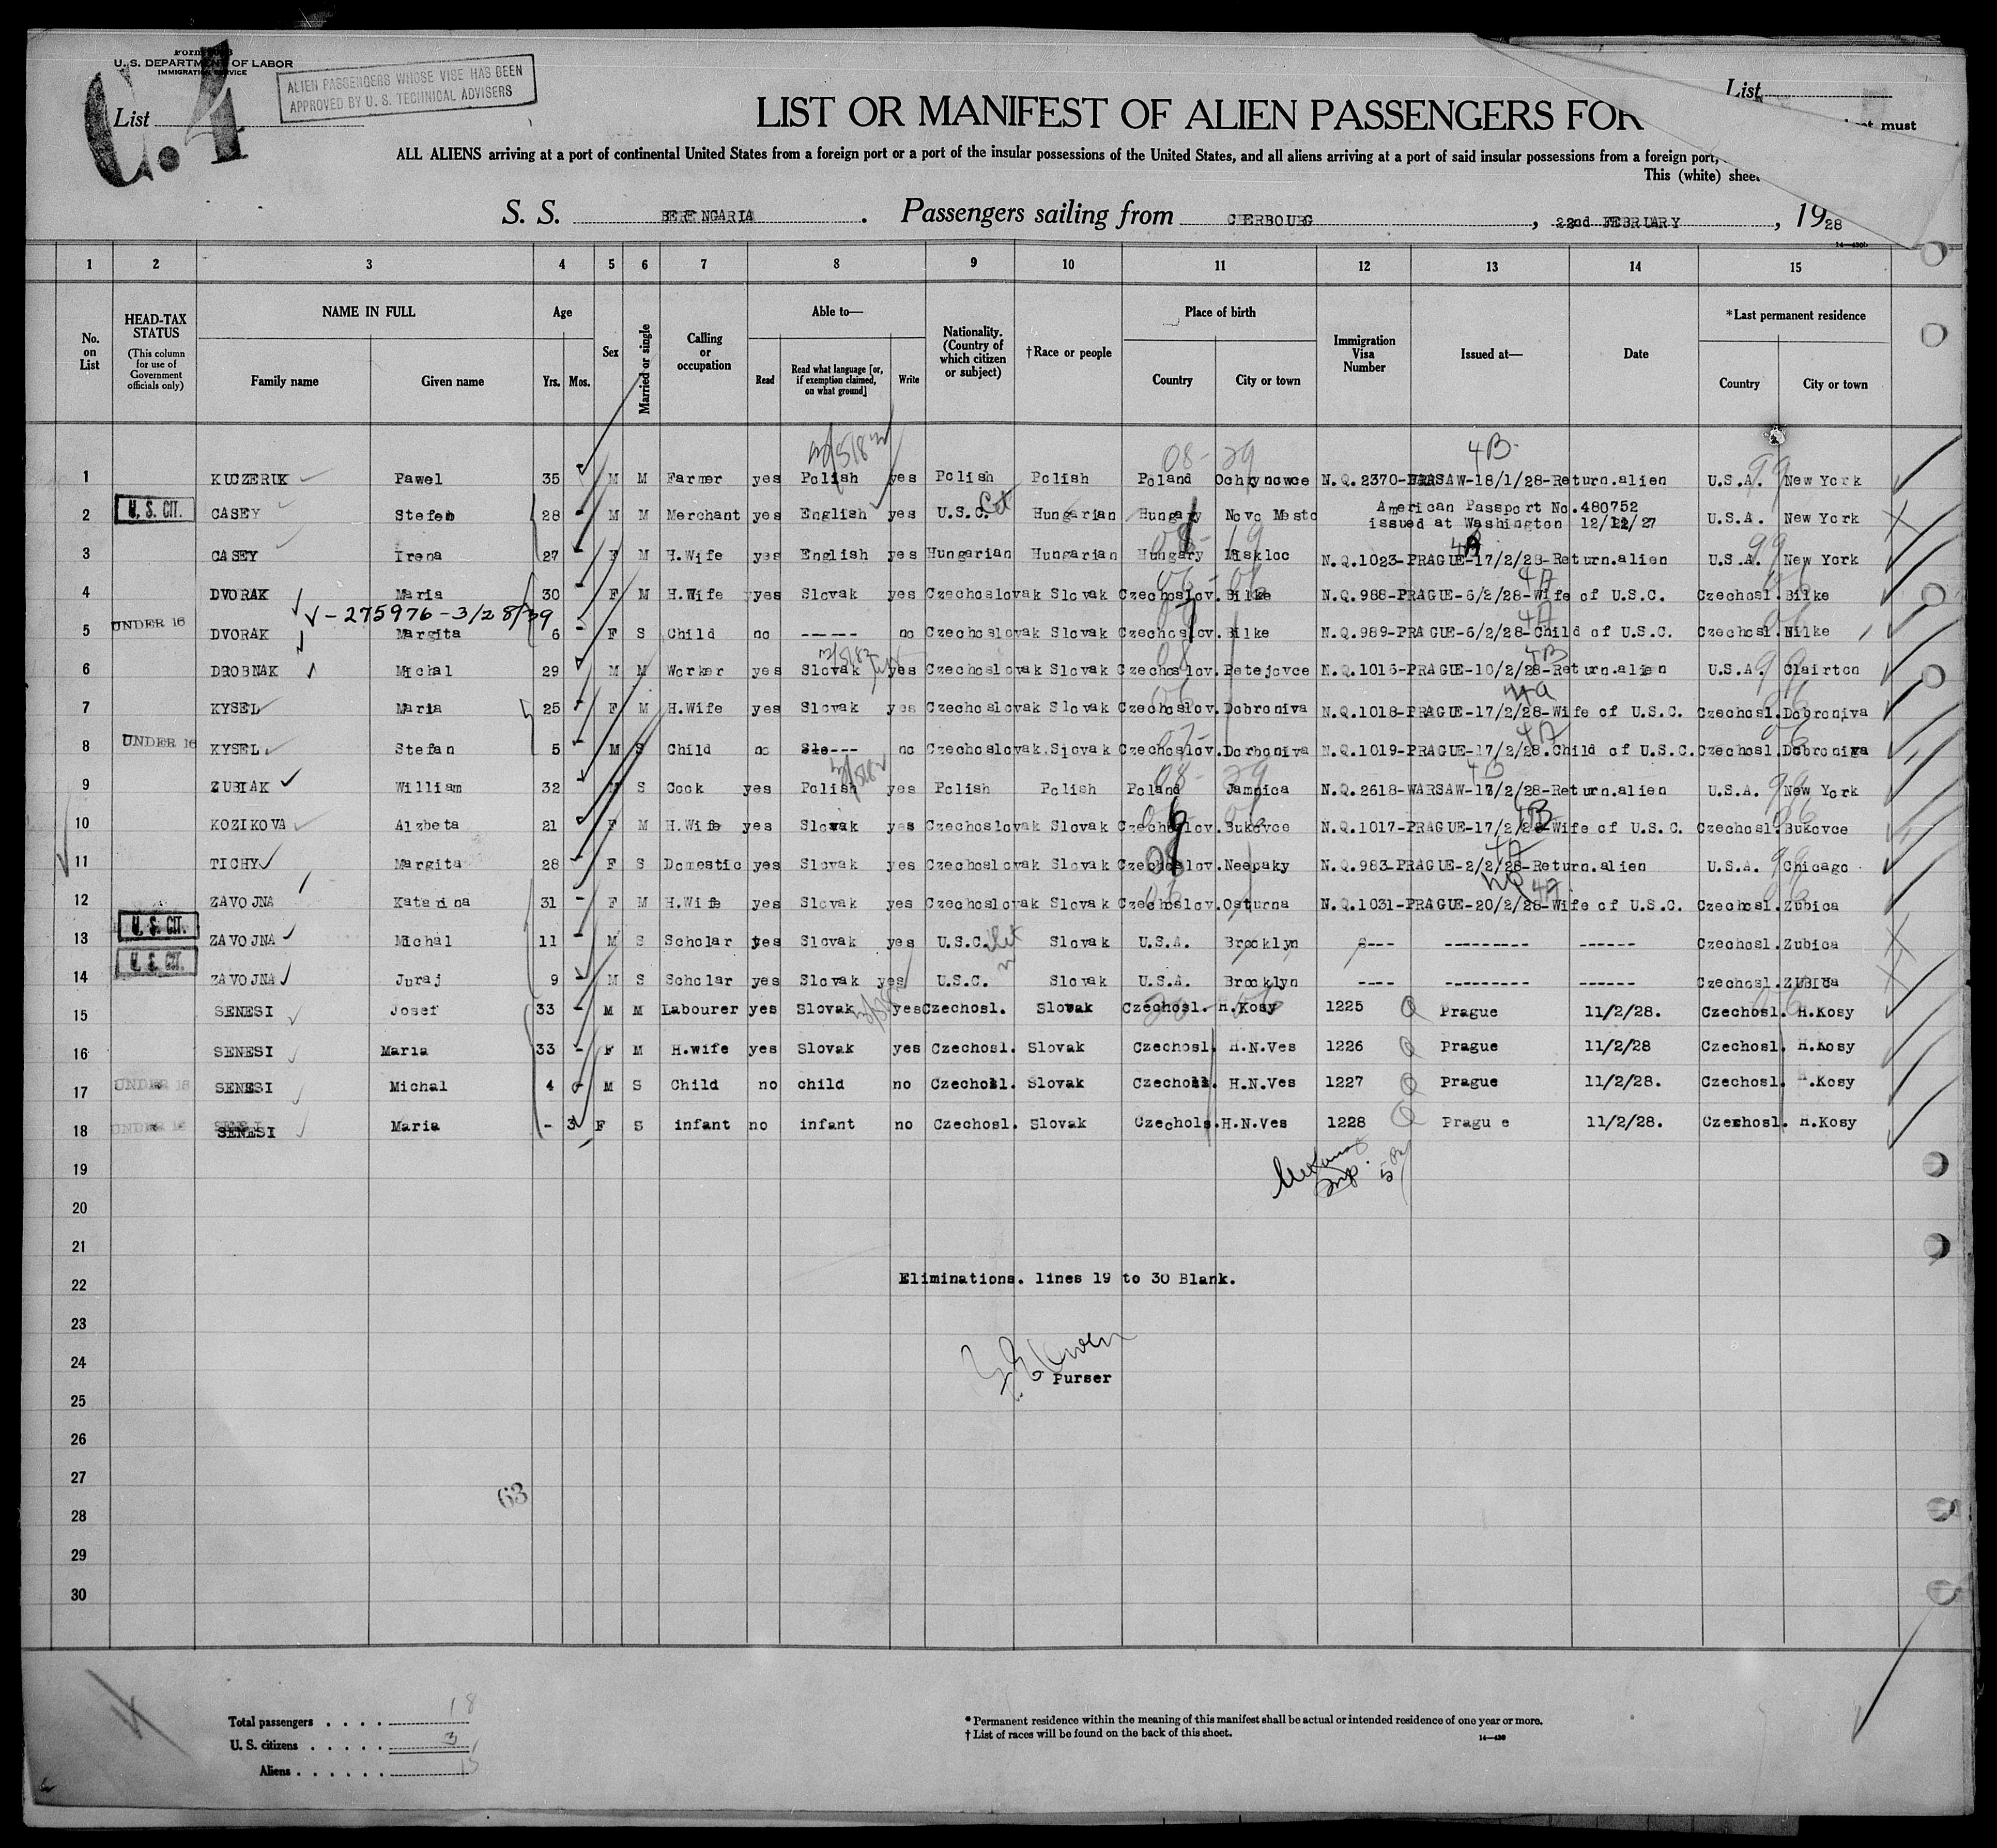 Form
U. S. DEPARTMENT OF LABOR
IMMIGRATION SERVICE
ALIEN PASSENGERS WHOSE VISE HAS BEEN
APPROVED BY U. S. TECHNICAL ADVISERS
List
C.4
List
must
LIST OR MANIFEST OF ALIEN PASSENGERS FOR
ALL ALIENS arriving at a port of continental United States from a foreign port or a port of the insular possessions of the United States, and all aliens arriving at a port of said insular possessions from a foreign port,
This (white) sheet
S. S. BERENGARIA . Passengers sailing from CHERBOURG , 22nd FEBRUARY , 1928
1 2 3 4 5 6 7 8 9 10 11 12 13 14 15
No. on List
HEAD-TAX STATUS (This column for use of Government officials only)
NAME IN FULL Family name Given name
Age Yrs. Mos.
Sex
Married or single
Calling or occupation
Able to— Read Read what language [or, if exemption claimed, on what ground] Write
Nationality. (Country of which citizen or subject)
†Race or people
Place of birth Country City or town
Immigration Visa Number
Issued at—
Date
*Last permanent residence Country City or town
4B
1 KUCZERUK Pawel 35 M M Farmer yes Polish yes Polish Polish Poland Ochrynowce N.Q.2370-WARSAW-18/1/28-Return.alien U.S.A. New York
2 U. S. CIT. CASEY Stefen 28 M M Merchant yes English yes U.S.C. Hungarian Hungary Novo Mesto American Passport No.480752 issued at Washington 12/12/27 U.S.A. New York
3 CASEY Irena 27 F M H.Wife yes English yes Hungarian Hungarian Hungary Miskloc N.Q.1023-PRAGUE-17/2/28-Return.alien U.S.A. New York
4 DVORAK Maria 30 F M H.Wife yes Slovak yes Czechoslovak Slovak Czechoslov. Bilke N.Q.988-PRAGUE-6/2/28-Wife of U.S.C. Czechosl. Bilke
V-275976-3/28/39
5 UNDER 16 DVORAK Margita 6 F S Child no ---- no Czechoslovak Slovak Czechoslov. Bilke N.Q.989-PRAGUE-6/2/28-Child of U.S.C. Czechosl. Nilke
6 DROBNAK Michal 29 M M Worker yes Slovak yes Czechoslovak Slovak Czechoslov. Petejovce N.Q.1016-PRAGUE-10/2/28-Return.alien U.S.A. Clairton
7 KYSEL Maria 25 F M H.Wife yes Slovak yes Czechoslovak Slovak Czechoslov. Dobroniva N.Q.1018-PRAGUE-17/2/28-Wife of U.S.C. Czechosl. Dobroniva
8 UNDER 16 KYSEL Stefan 5 M S Child no Slo--- no Czechoslovak Slovak Czechoslov. Dorboniva N.Q.1019-PRAGUE-17/2/28.Child of U.S.C. Czechosl. Dobroniva
9 ZUBIAK William 32 M S Cook yes Polish yes Polish Polish Poland Jamnica N.Q.2618-WARSAW-18/2/28-Return.alien U.S.A. New York
10 KOZIKOVA Alzbeta 21 F M H.Wife yes Slovak yes Czechoslovak Slovak Czechoslov. Bukovce N.Q.1017-PRAGUE-17/2/28-Wife of U.S.C. Czechosl. Bukovce
11 TICHY Margita 28 F S Domestic yes Slovak yes Czechoslovak Slovak Czechoslov. Neepaky N.Q.983-PRAGUE-2/2/28-Return.alien U.S.A. Chicago
12 ZAVOJNA Katarina 31 F M H.Wife yes Slovak yes Czechoslovak Slovak Czechoslov. Osturna N.Q.1031-PRAGUE-20/2/28-Wife of U.S.C. Czechosl. Zubica
13 U. S. CIT. ZAVOJNA Michal 11 M S Scholar yes Slovak yes U.S.C. Slovak U.S.A. Brooklyn ---- --------- ------ Czechosl. Zubica
14 U. S. CIT. ZAVOJNA Juraj 9 M S Scholar yes Slovak yes U.S.C. Slovak U.S.A. Brooklyn ---- --------- ------ Czechosl. ZUBICa
15 SENESI Josef 33 - M M Labourer yes Slovak yes Czechosl. Slovak Czechosl. H.Kosy 1225 Q Prague 11/2/28. Czechosl. H.Kosy
16 SENESI Maria 33 - F M H.wife yes Slovak yes Czechosl. Slovak Czechosl. H.N.Ves 1226 Q Prague 11/2/28 Czechosl. H.Kosy
17 UNDER 16 SENESI Michal 4 - M S Child no child no Czechosl. Slovak Czechosl. H.N.Ves 1227 Q Prague 11/2/28. Czechosl. H.Kosy
18 UNDER 16 SENESI Maria - 3 F S infant no infant no Czechosl. Slovak Czechols. H.N.Ves 1228 Q Pragu e 11/2/28. Czechosl. H.Kosy
19
20
21
22 Eliminations. lines 19 to 30 Blank.
23
24
Purser
25
26
27
63
28
29
30
Total passengers . . . . 18
U. S. citizens . . . . . 3
Aliens . . . . . . 15
* Permanent residence within the meaning of this manifest shall be actual or intended residence of one year or more.
† List of races will be found on the back of this sheet.
14—430